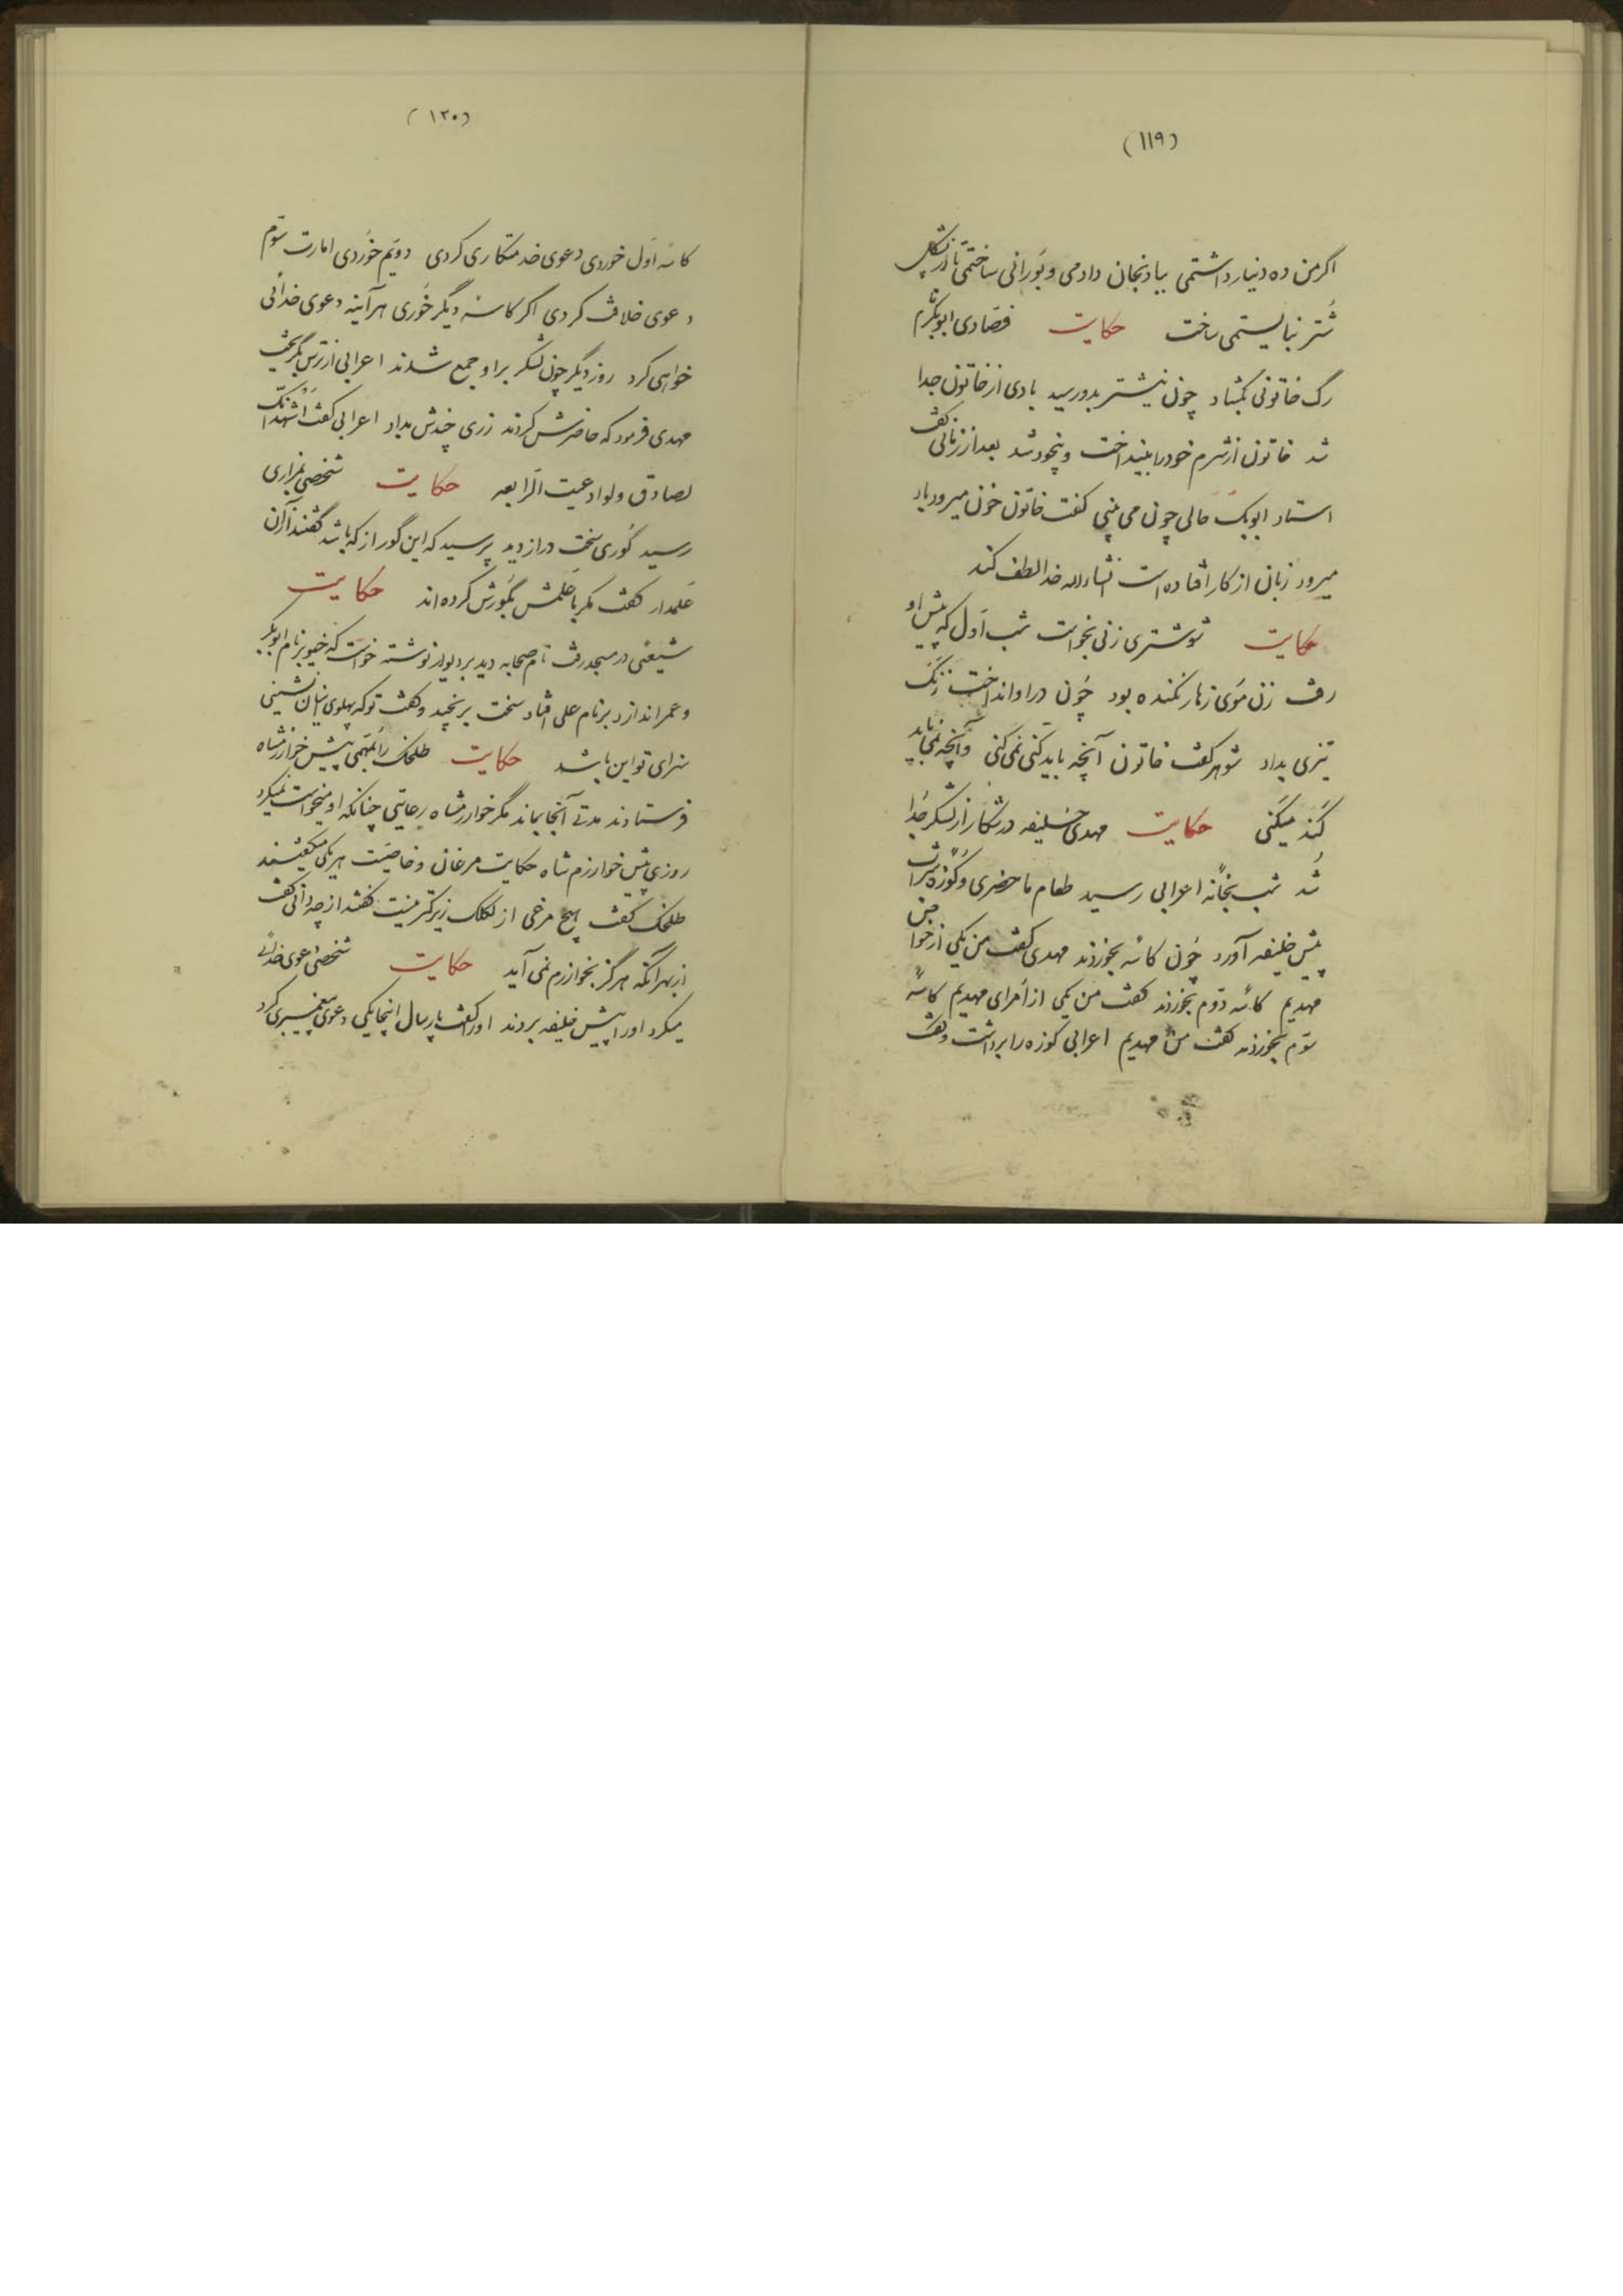 (۱۱۹)
اگر من ده دینار داشتمی ببادنجان دادمی و بورانی ساختمی تا از تشکل
شتر نبایستمی ساخت حکایت فصادی ابوبکر نام
رگ خاتونی بگشاد چون نیشتر بدو رسید بادی از خاتون جدا
شد خاتون از شرم خود را بینداخت و بیخود شد بعد از زمانی گفت
استاد ابوبک حالی چون می بینی گفت خاتون خون میرود باد
میرود زبان از کار افتاده است انشاءالله خدا لطف کند
حکایت شوشتری زنی بخواست شب اول که پیش او
رفت زن موی زهار نکنده بود چون در او انداخت زنک
تیزی بداد شوهر گفت خاتون آنچه باید کنی نمی کنی و آنچه نمی باید
کند میکنی حکایت مهدی خلیفه در شکار از لشکر جدا
شد شب بخانه اعرابی رسید طعام ماحضری و کوزه شراب
پیش خلیفه آورد چون کاسه بخوردند مهدی گفت من یکی از خواص
مهدیم کاسه دوم بخوردند گفت من یکی از امرای مهدیم کاسه
سوم بخوردند گفت من مهدیم اعرابی کوزه را برداشت و گفت
(۱۲۰)
کاسه اول خوردی دعوی خدمتکاری کردی دویم خوردی امارت سوم
دعوی خلافت کردی اگر کاسه دیگر خوری هر آینه دعوی خدائی
خواهی کرد روز دیگر چون لشکر بر او جمع شدند اعرابی از ترس بگریخت
مهدی فرمود که حاضرش کردند زری چندش بداد اعرابی گفت اشهد انک
لصادق ولو ادعیت الرابعه حکایت شخصی بمزاری
رسید گوری سخت دراز دید پرسید که این گور از که باشد گفتند از آن
علمدار گفت مگر با علمش بگورش کرده اند حکایت
شیعئی در مسجد رفت نام صحابه دید بر دیوار نوشته خواست که خیو بر نام ابوبکر
و عمر اندازد بر نام علی افتاد سخت برنجید و گفت تو که پهلوی اینان نشینی
سزای تو این باشد حکایت طلخک را بمهمی پیش خوارزمشاه
فرستادند مدتی آنجا بماند مگر خوارزمشاه رعایتی چنانکه او میخواست نمیکرد
روزی پیش خوارزم شاه حکایت مرغان و خاصیت هر یکی میگفتند
طلخک گفت هیچ مرغی از لکلک زیرکتر نیست گفتند از چه دانی گفت
از بهر آنکه هرگز بخوارزم نمی آید حکایت شخصی دعوی خدائی
میکرد او را پیش خلیفه بردند او را گفت پارسال اینجا یکی دعوی پیغمبری کرد